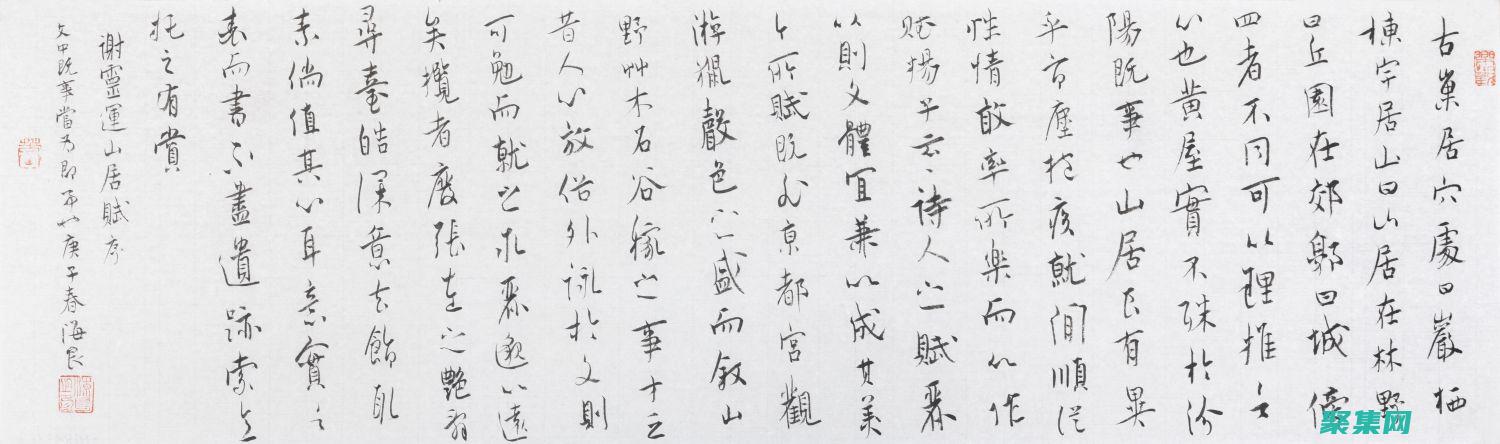 古巢居穴處曰巖栖
棟宇居山曰山居在林野
曰丘園在郊郭曰城傍
四者不同可以理推言
心也黄屋實不殊於汾
陽既事也山居良有異
乎市廛抱疾就閒順從
性情敢率所樂而以作
賦揚子云〻詩人之賦麗
以則文體宜兼以成其美
今所賦既非京都宮觀
游獵聲色之盛而敘山
野艸木石谷稼之事才乏
昔人心放俗外詠於文則
可勉而就之求麗邈以遠
矣攬者廢張左之艷辭
尋臺皓深意去飾取
素倘值其心耳意實言
表而書不盡遺跡索意
托之有賞
謝靈運山居賦序
文中既事當為即事 庚子春海艮
聚集网